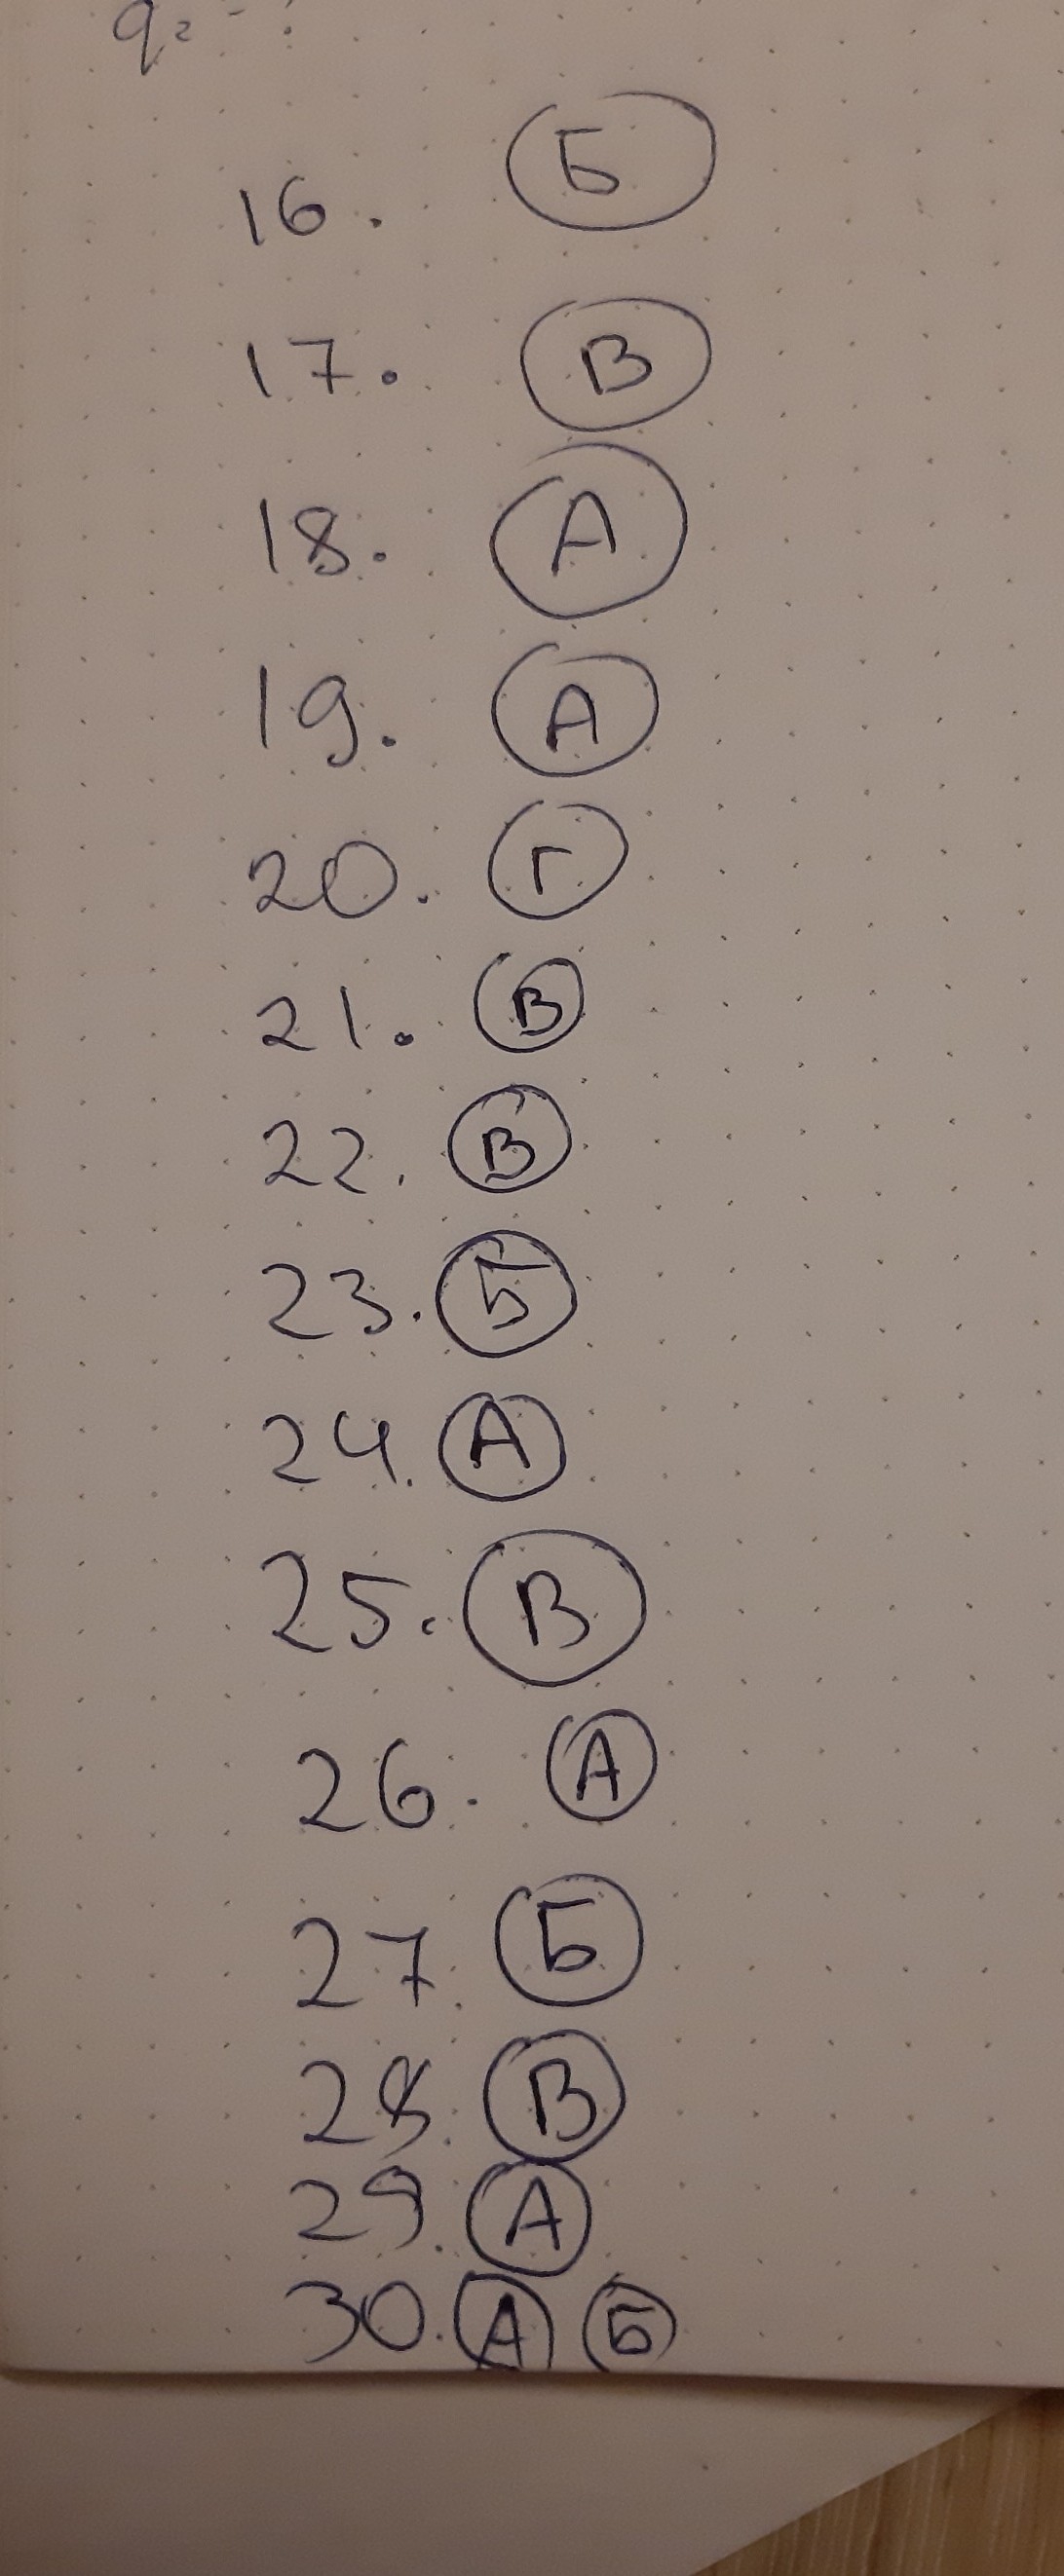 16. Б
17. В
18. А
19. А
20. Г
21. В
22. В
23. Б
24. А
25. В
26. А
27. Б
28. В
29. А
30. А Б